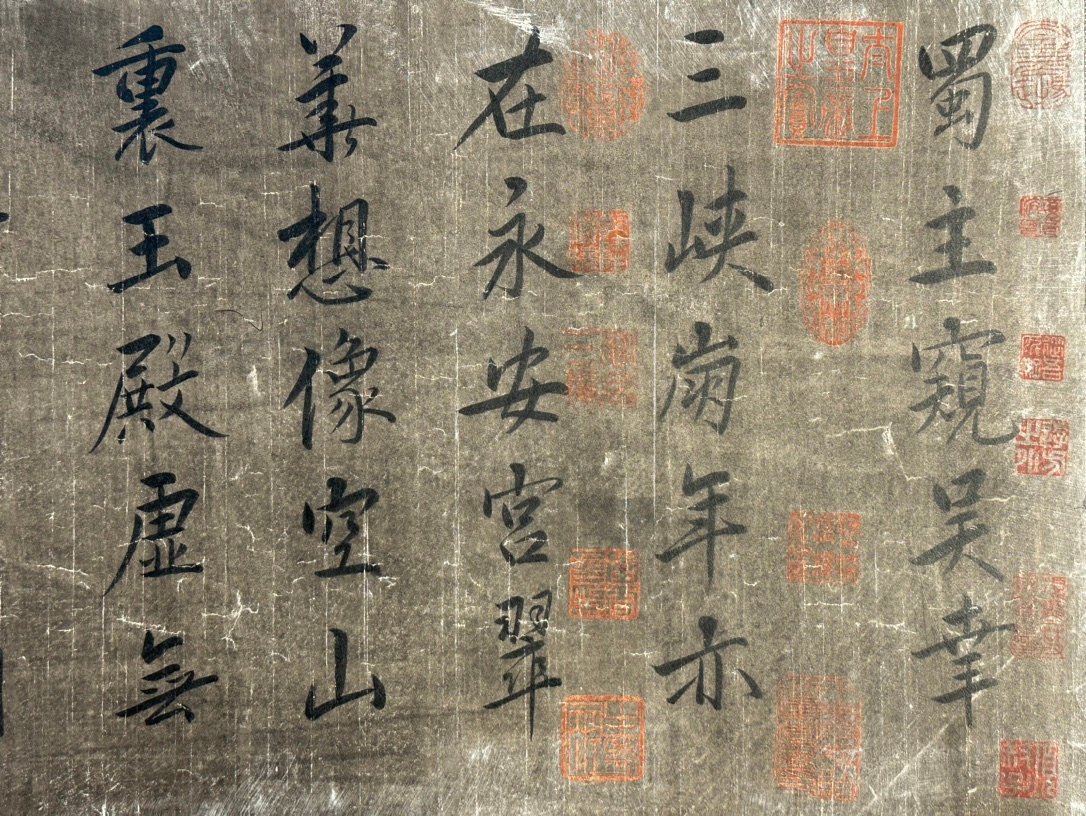 蜀主窺吳幸
三峽崩年亦
在永安宮翠
華想像空山
裏玉殿虛無